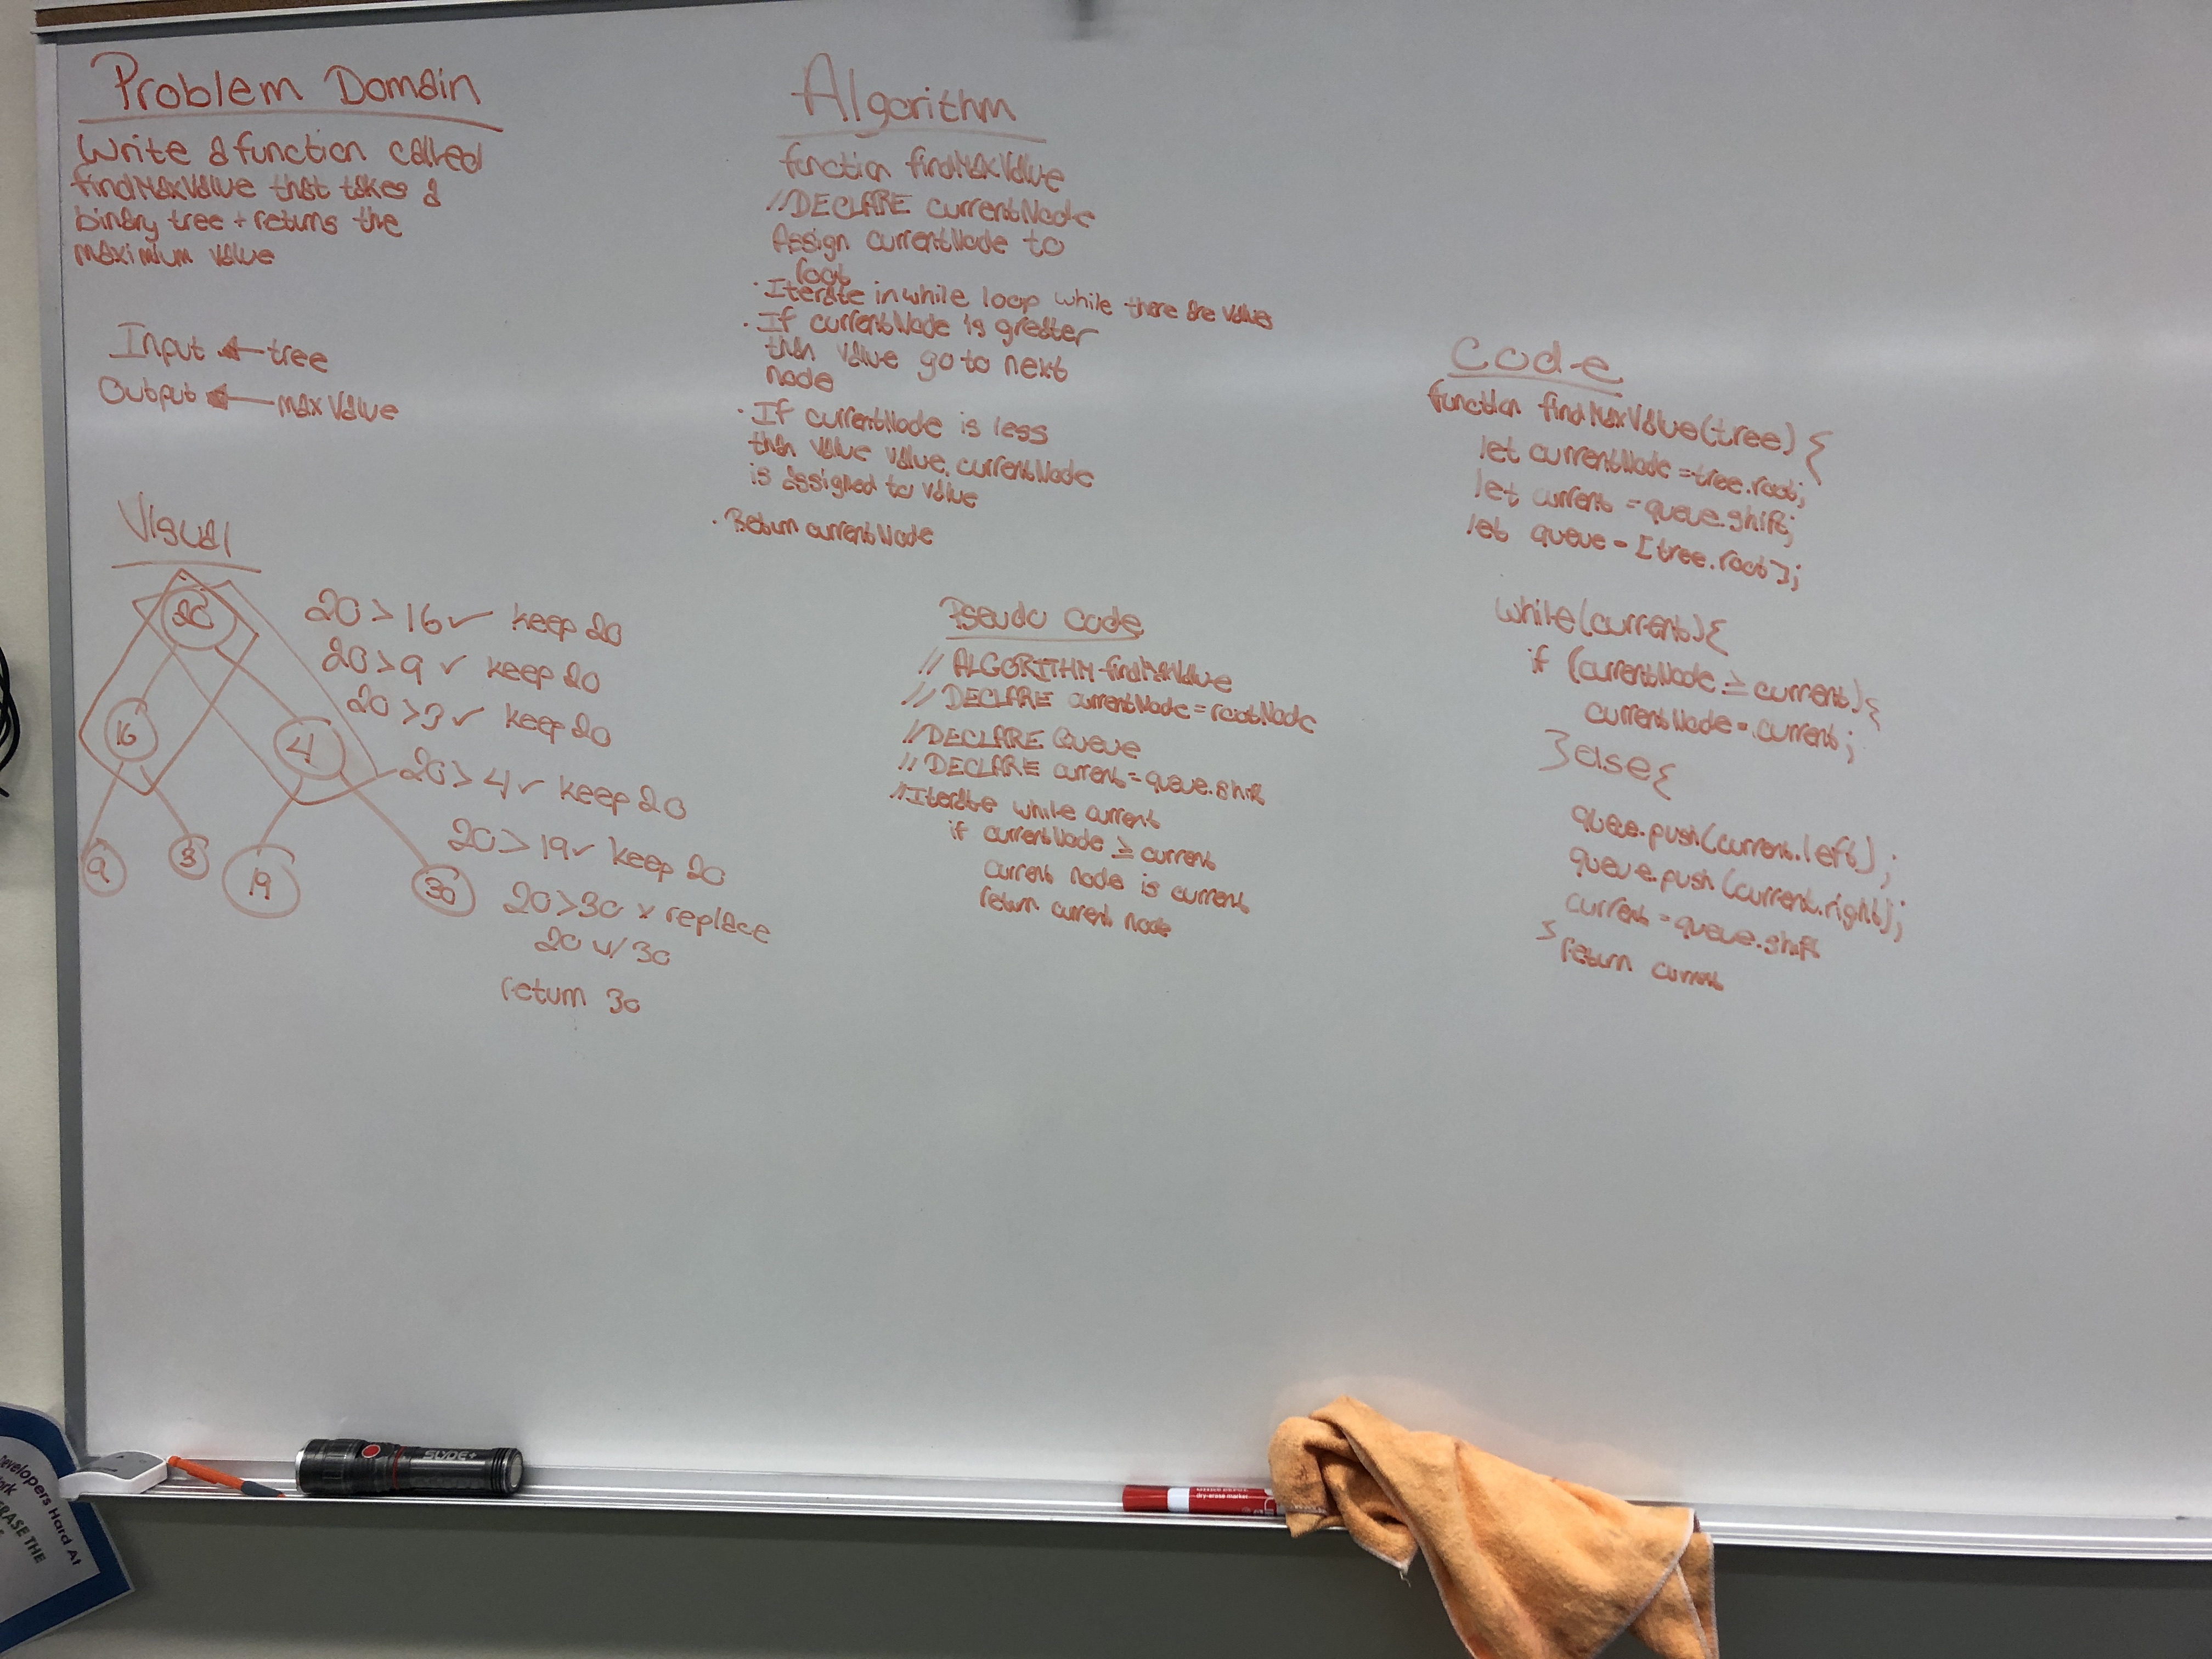 Problem Domain
Write a function called
findMaxValue that takes a
binary tree + returns the
maximium value
Input ← tree
Output ← maxValue
Visual
20
16
4
9
3
19
30
20 > 16 ✓ keep 20
20 > 9 ✓ keep 20
20 > 3 ✓ keep 20
20 > 4 ✓ keep 20
20 > 19 ✓ keep 20
20 > 30 x replace
20 w/ 30
return 30
Algorithm
function findMaxValue
//DECLARE currentNode
Assign currentNode to
root
· Iterate in while loop while there are values
· If currentNode is greater
than value go to next
node
· If currentNode is less
than value value. currentNode
is assigned to value
· Return currentNode
Pseudo Code
// ALGORITHM-findMaxValue
// DECLARE currentNode = rootNode
// DECLARE Queue
// DECLARE current = queue.shift
// Iterate while current
if currentNode ≥ current
current node is current
return current node
Code
function findMaxValue(tree) {
let currentNode = tree.root;
let current = queue.shift;
let queue = [tree.root];
while(current){
if (currentNode ≥ current){
currentNode = current;
}else{
quee.push(current.left);
queue.push(current.right);
current = queue.shift
}
return current
SLYDE+
dry-erase marker
Developers Hard At
ERASE THE